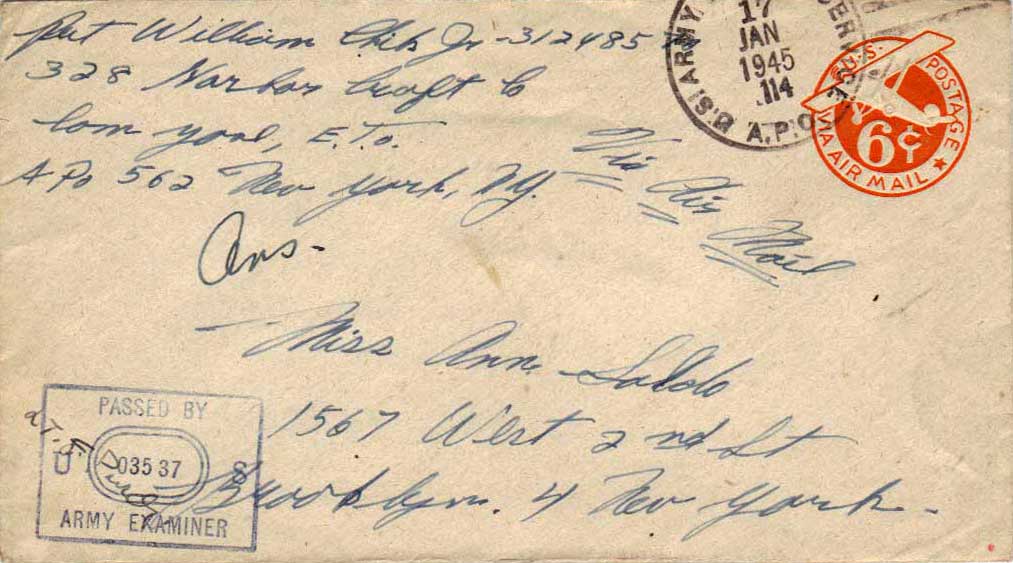 Pvt William Chih Jr - 312485
328 Harbor Craft Co
Com Zone, E.T.O.
APO 562 New York, N.Y.
Via Air Mail
Ans-
U.S. ARMY
17
JAN
1945
114
A.P.O.
U.S. POSTAGE
6¢
VIA AIR MAIL
Miss Ann Saldo
1567 West 2nd St
Brooklyn. 4 New York.
PASSED BY
U 03537 S
ARMY EXAMINER